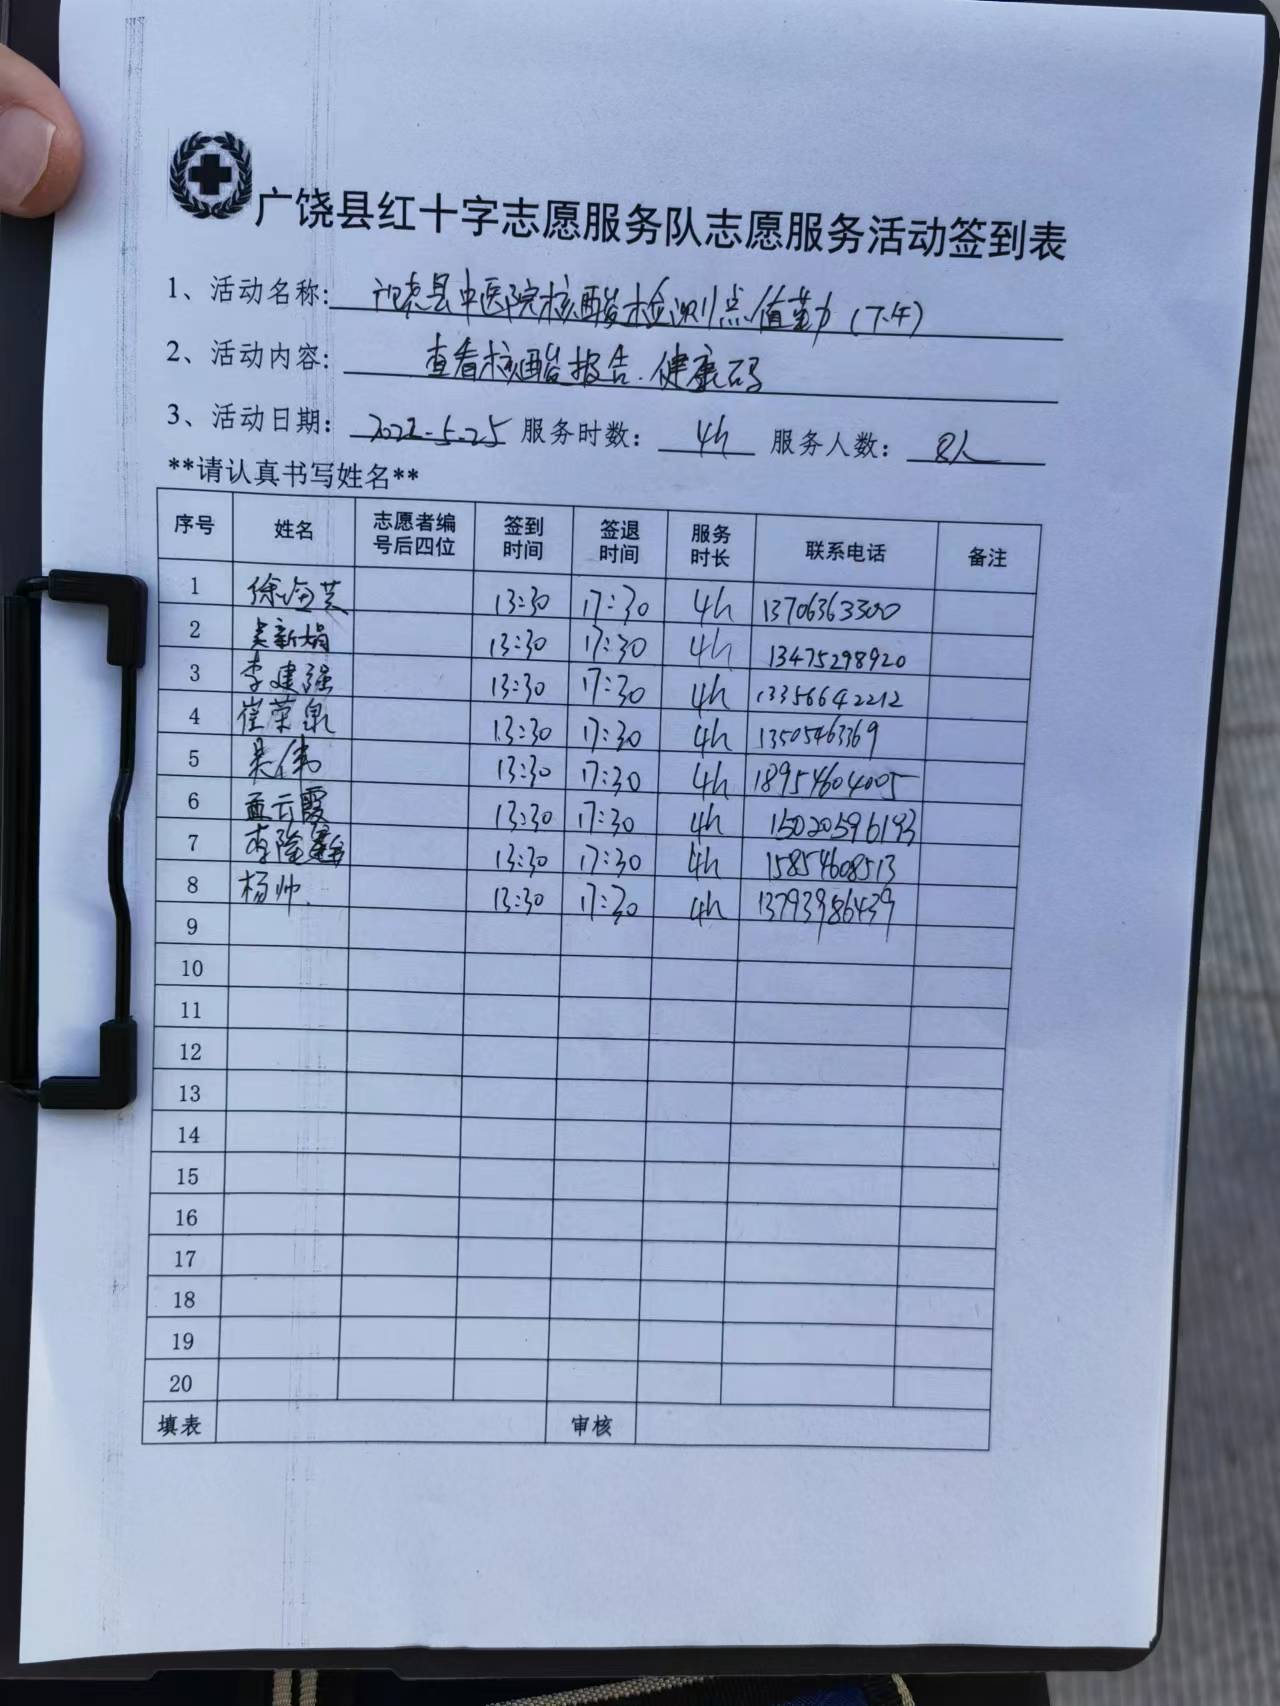 广饶县红十字志愿服务队志愿服务活动签到表
1、活动名称: 广饶县中医院核酸检测点值勤(下午)
2、活动内容: 查看核酸报告.健康码
3、活动日期: 2022-5-25 服务时数: 4h 服务人数: 8人
**请认真书写姓名**
序号 姓名 志愿者编号后四位 签到时间 签退时间 服务时长 联系电话 备注
1 13:30 17:30 4h 13706363300
2 吴新娟 13:30 17:30 4h 13475298920
3 李建强 13:30 17:30 4h 13356642212
4 崔荣泉 13:30 17:30 4h 13505463369
5 吴伟 13:30 17:30 4h 18954604005
6 孟云霞 13:30 17:30 4h 15020596193
7 13:30 17:30 4h 15854608513
8 杨帅. 13:30 17:30 4h 13793986439
9
10
11
12
13
14
15
16
17
18
19
20
填表 审核